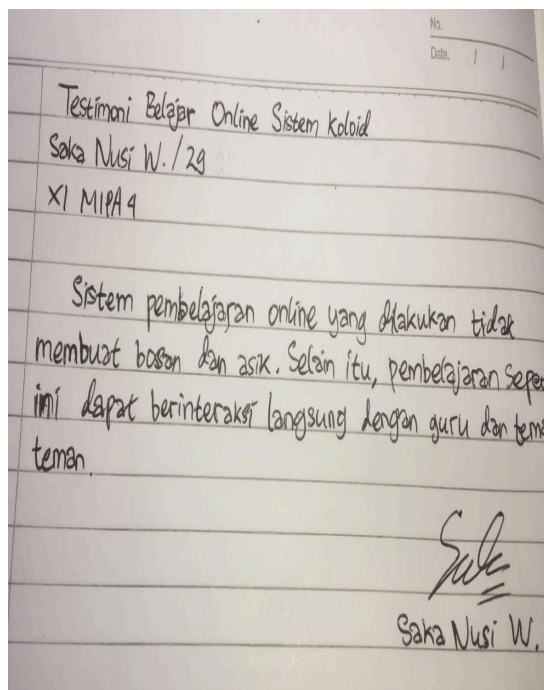 No.
Date. / /
Testimoni Belajar Online Sistem Koloid
Saka Nusi W. / 29
XI MIPA 4
Sistem pembelajaran online yang dilakukan tidak
membuat bosan dan asik. Selain itu, pembelajaran Sepe
ini dapat berinteraksi langsung dengan guru dan tema
teman.
Saka Nusi W.